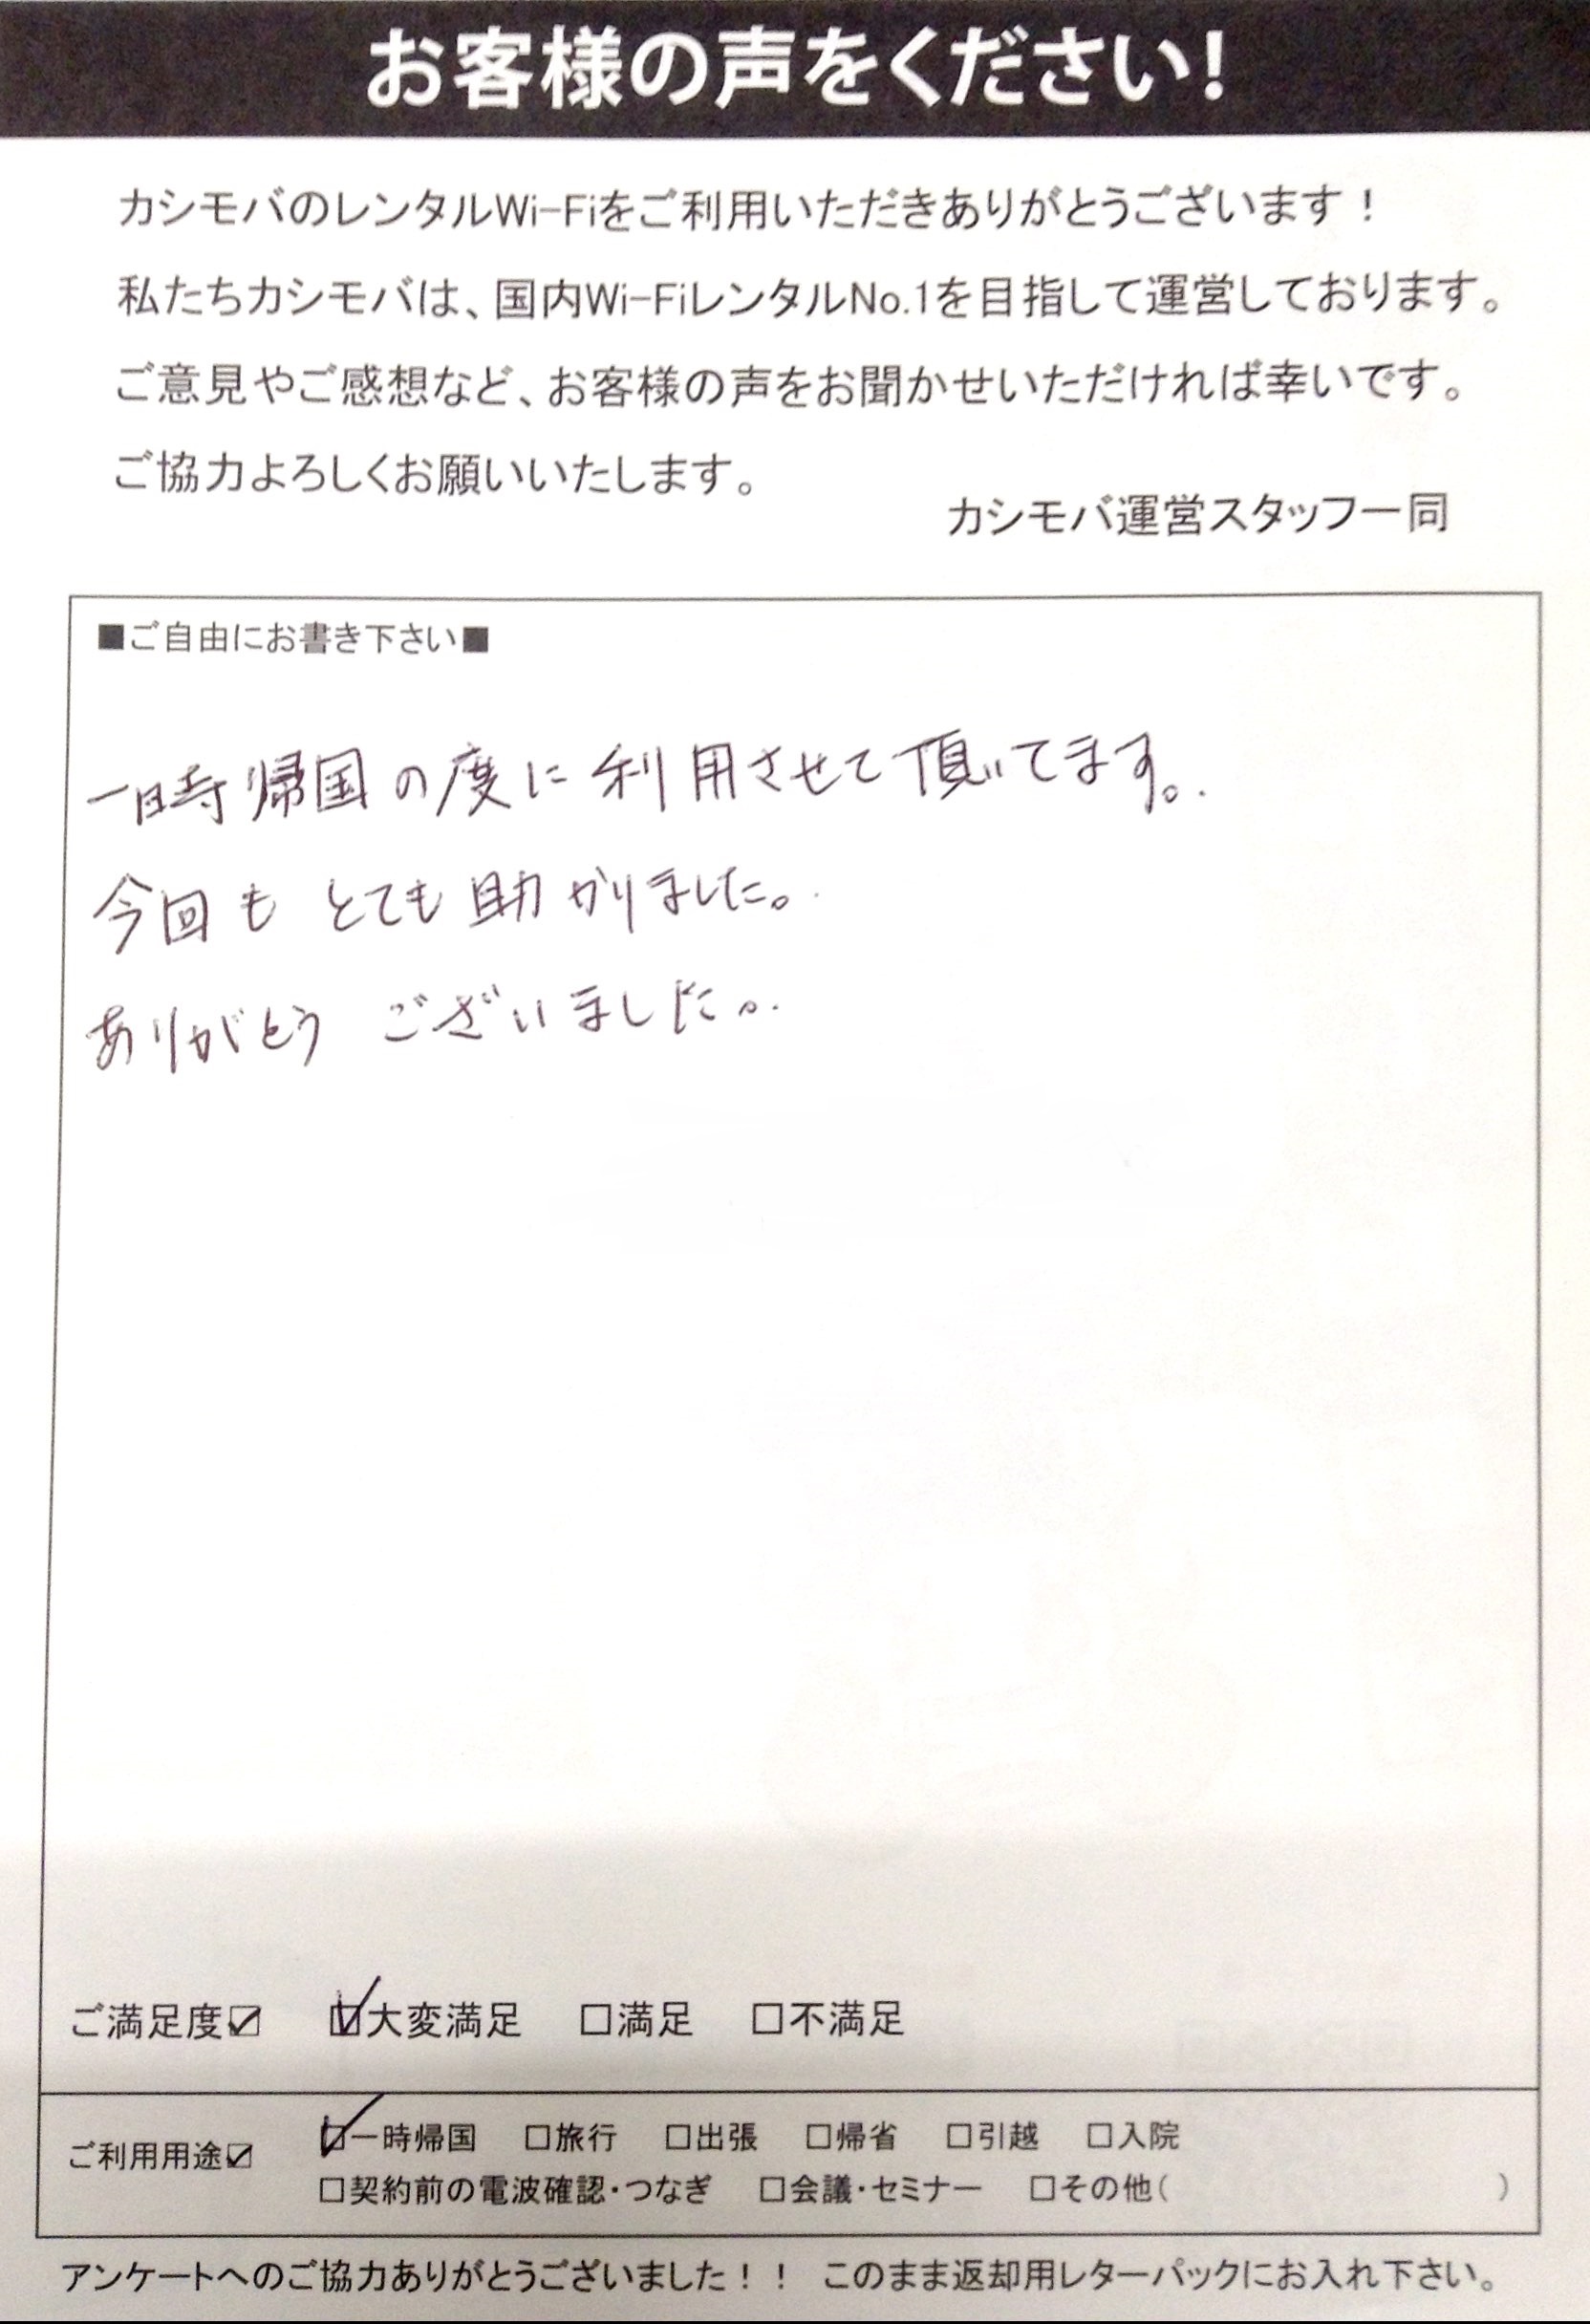 お客様の声をください!
カシモバのレンタルWi-Fiをご利用いただきありがとうございます！
私たちカシモバは、国内Wi-FiレンタルNo.1を目指して運営しております。
ご意見やご感想など、お客様の声をお聞かせいただければ幸いです。
ご協力よろしくお願いいたします。
カシモバ運営スタッフ一同
■ご自由にお書き下さい■
一時帰国の度に利用させて頂いてます。
今回もとても助かりました。
ありがとうございました。
ご満足度☑ ☑大変満足 □満足 □不満足
ご利用用途☑ ☑一時帰国 □旅行 □出張 □帰省 □引越 □入院
□契約前の電波確認・つなぎ □会議・セミナー □その他( )
アンケートへのご協力ありがとうございました！！ このまま返却用レターパックにお入れ下さい。